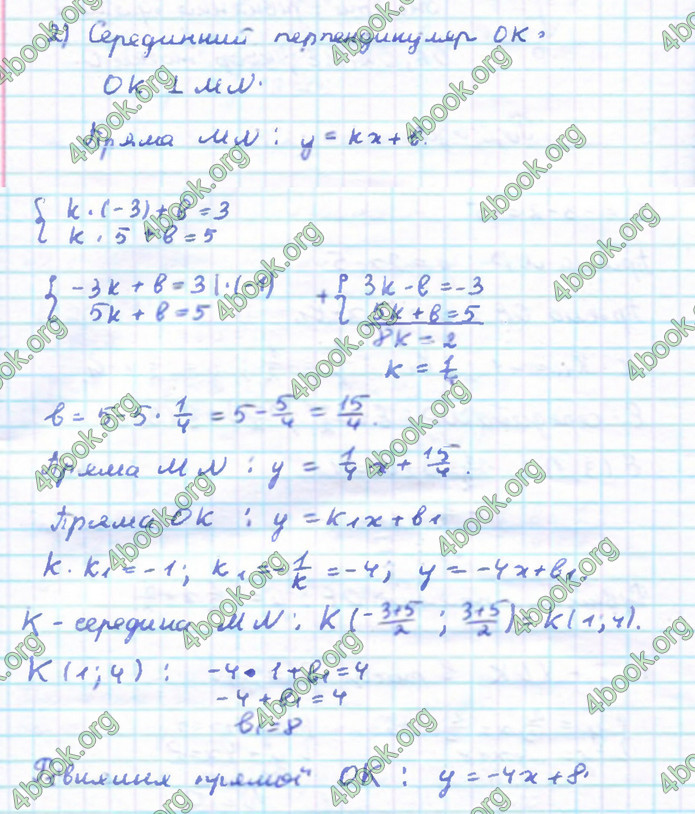 2) Серединний перпендикуляр OK.
OK ⊥ MN.
Пряма MN : y = kx + в.
{ k · (-3) + в = 3
{ k · 5 + в = 5
{ -3k + в = 3 | · (-1) + { 3k - в = -3
{ 5k + в = 5 { 5k + в = 5
8k = 2
k = 1/4
в = 5 - 5 · 1/4 = 5 - 5/4 = 15/4.
Пряма MN : y = 1/4 x + 15/4.
Пряма OK : y = k₁x + в₁
k · k₁ = -1; k₁ = -1/k = -4; y = -4x + в₁.
K - середина MN : K (-3+5/2 ; 3+5/2) = K (1; 4).
K (1; 4) : -4 · 1 + в₁ = 4
-4 + в₁ = 4
в₁ = 8
Рівняння прямої OK : y = -4x + 8.
4book.org